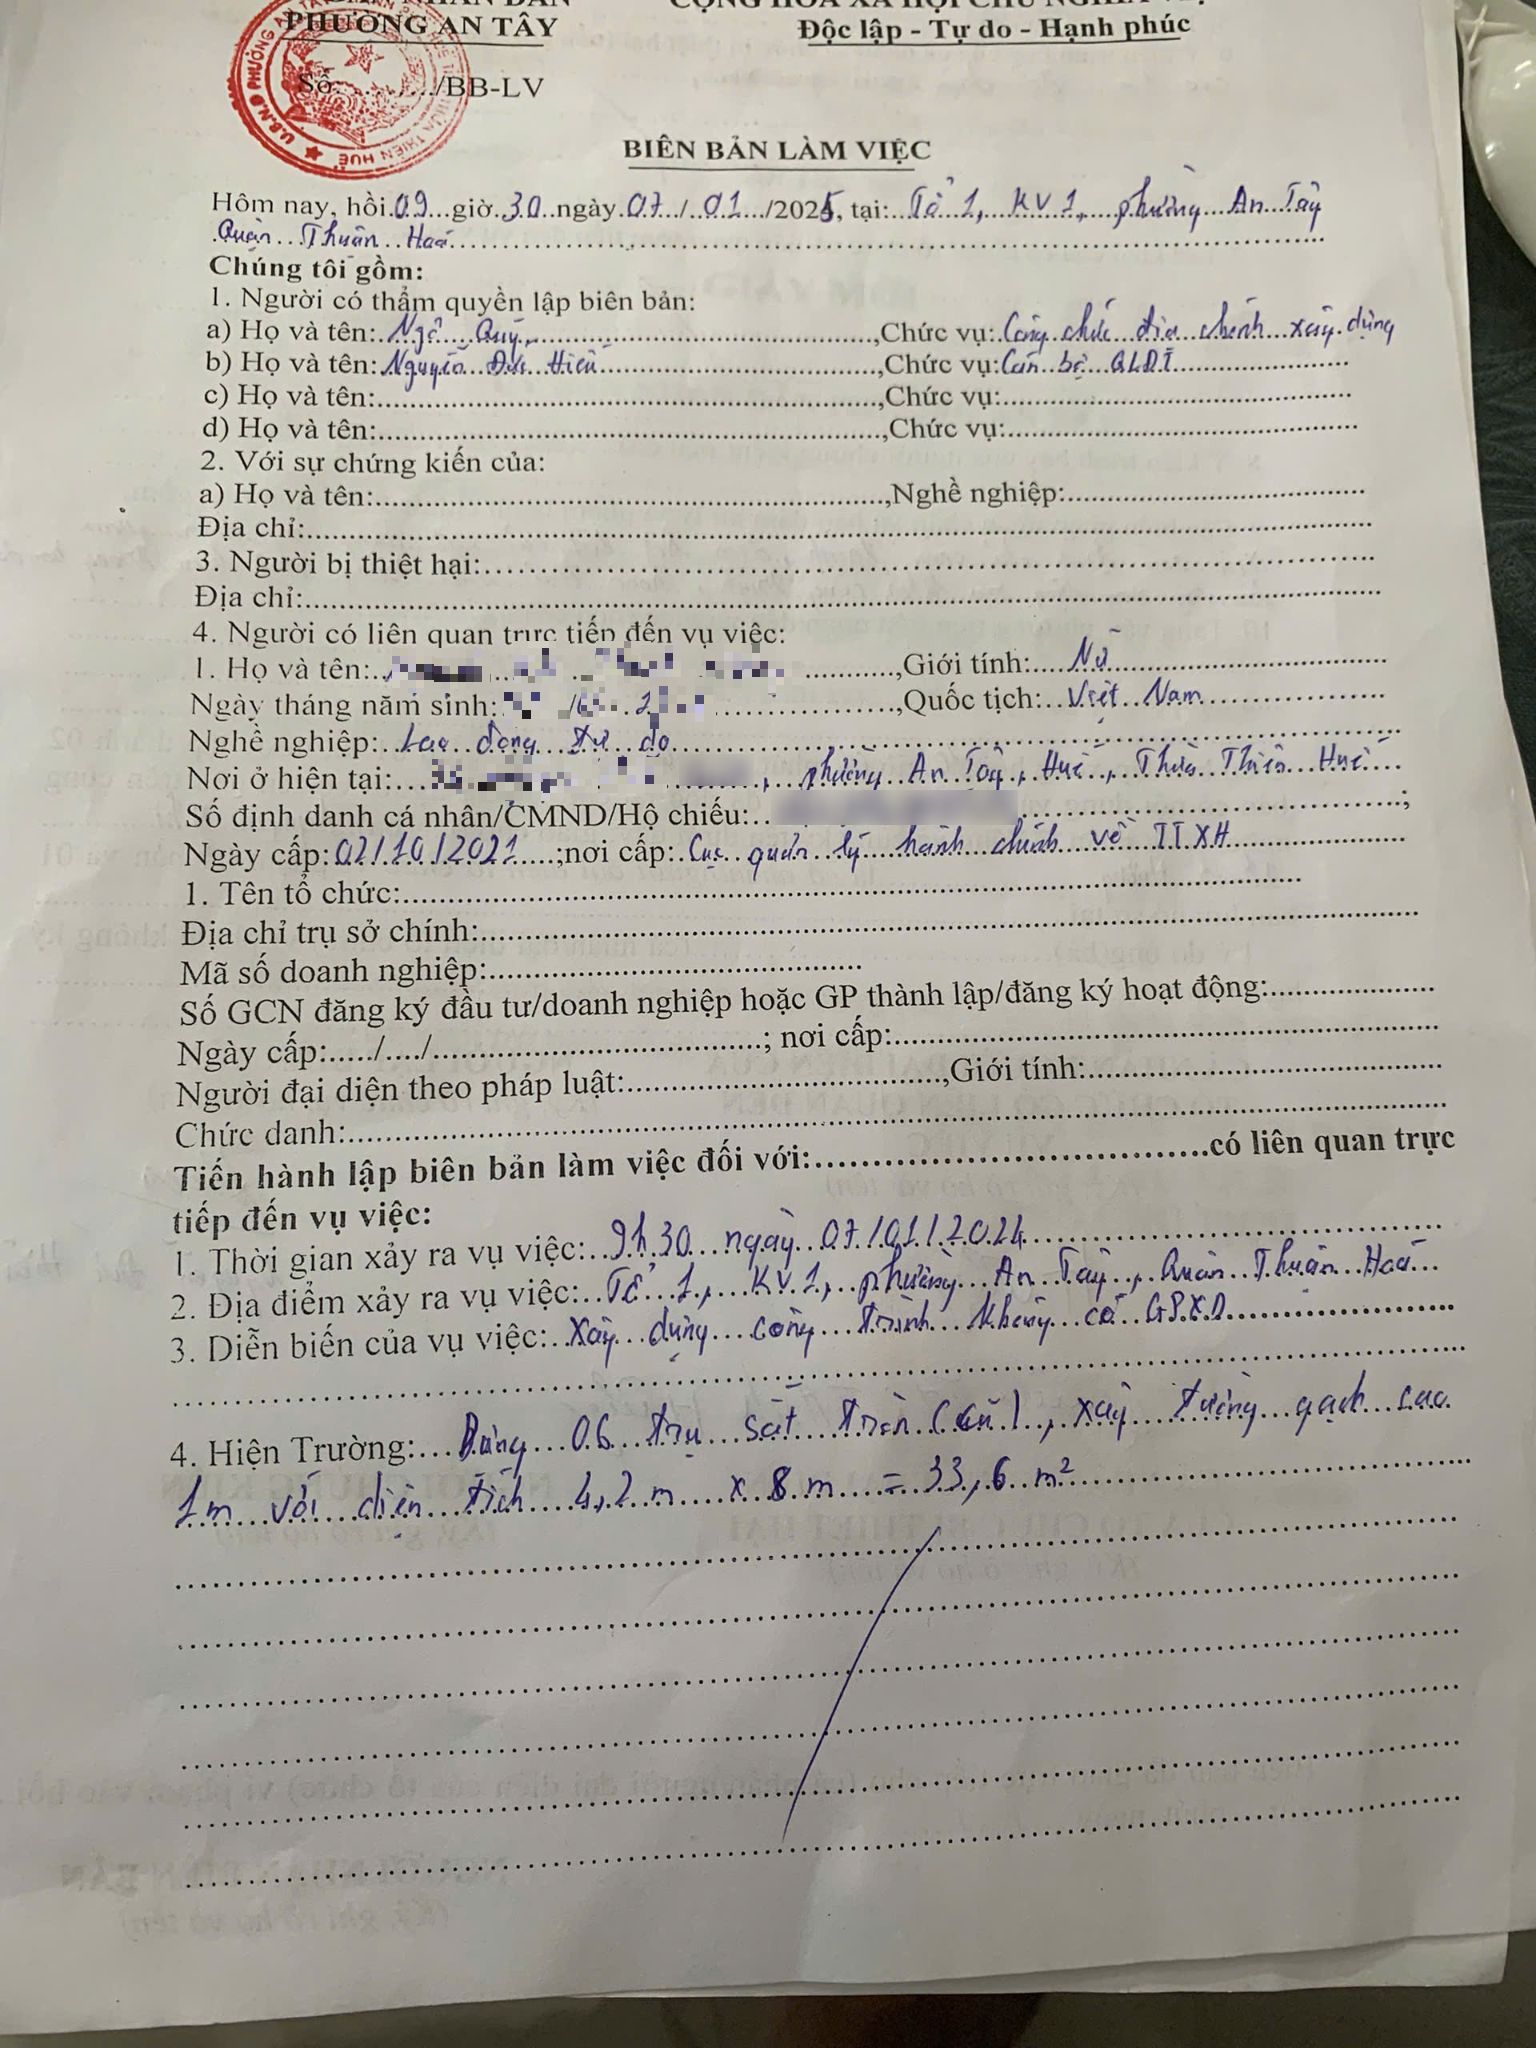 PHƯỜNG AN TÂY
Độc lập - Tự do - Hạnh phúc
Số........../BB-LV
BIÊN BẢN LÀM VIỆC
Hôm nay, hồi 09 giờ 30 ngày 07/01/2025, tại: Tổ 1, KV1, phường An Tây
Quận Thuận Hoá
Chúng tôi gồm:
1. Người có thẩm quyền lập biên bản:
a) Họ và tên: Ngô Quý, Chức vụ: Công chức địa chính xây dựng
b) Họ và tên: Nguyễn Đức Hiếu, Chức vụ: Cán bộ QLĐT
c) Họ và tên:....................,Chức vụ:....................
d) Họ và tên:....................,Chức vụ:....................
2. Với sự chứng kiến của:
a) Họ và tên:....................,Nghề nghiệp:....................
Địa chỉ:....................
3. Người bị thiệt hại:....................
Địa chỉ:....................
4. Người có liên quan trực tiếp đến vụ việc:
1. Họ và tên: ,Giới tính: Nữ
Ngày tháng năm sinh: ,Quốc tịch: Việt Nam
Nghề nghiệp: Lao động tự do
Nơi ở hiện tại: , phường An Tây, Huế, Thừa Thiên Huế
Số định danh cá nhân/CMND/Hộ chiếu: ;
Ngày cấp: 02/10/2021 ;nơi cấp: Cục quản lý hành chính về TTXH
1. Tên tổ chức:....................
Địa chỉ trụ sở chính:....................
Mã số doanh nghiệp:....................
Số GCN đăng ký đầu tư/doanh nghiệp hoặc GP thành lập/đăng ký hoạt động:....................
Ngày cấp:...../..../....................; nơi cấp:....................
Người đại diện theo pháp luật:....................,Giới tính:....................
Chức danh:....................
Tiến hành lập biên bản làm việc đối với:....................có liên quan trực
tiếp đến vụ việc:
1. Thời gian xảy ra vụ việc: 9h30 ngày 07/01/2024
2. Địa điểm xảy ra vụ việc: Tổ 1, KV1, phường An Tây, Quận Thuận Hoá
3. Diễn biến của vụ việc: Xây dựng công trình không có GPXD
4. Hiện Trường: Dựng 06 trụ sắt tròn (cũ), xây tường gạch cao
1m với diện tích 4,2m x 8m = 33,6 m²